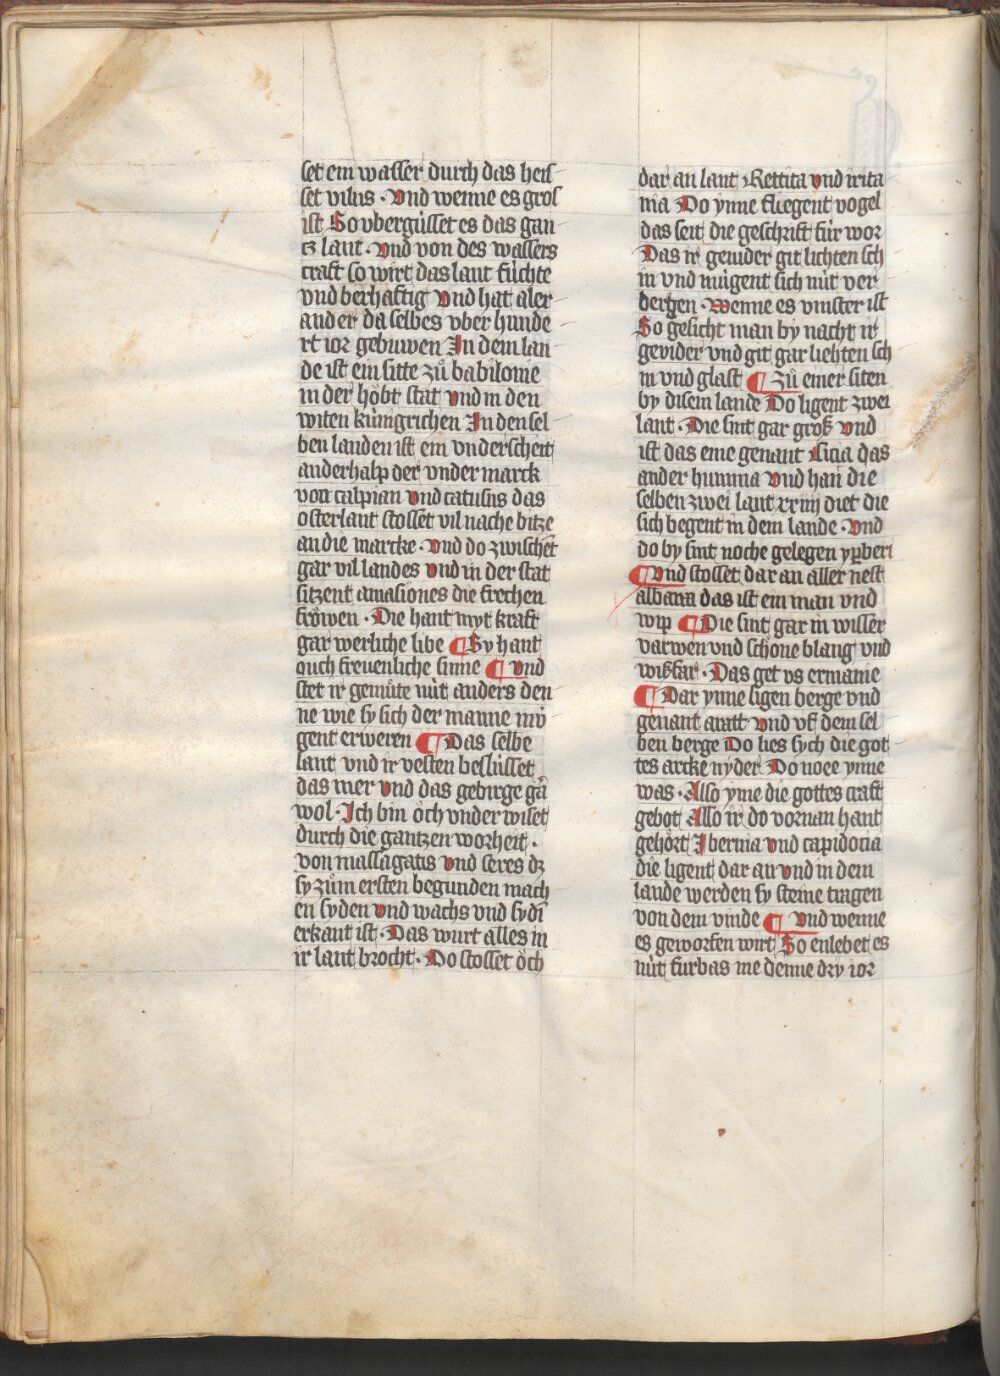 set ein wasser durch das heis
set vilus · Vnd wenne es gros
ist So vbergússet es das gan
cz lant · Vnd von des wassers
craft so wirt das lant fúchte
vnd berhaftig Vnd hat aler
ander da selbes vber hunde
rt ior gebuwen In dem lan
de ist ein sitte zů babilonie
in der höbt stat Vnd in den
witen kúnigrichen In den sel
ben landen ist ein vnderscheit
anderhalp der vnder marck
von caspian Vnd catusus das
osterlant stosset vil nache bitze
an die marcke · Vnd do zwischet
gar vil landes Vnd in der stat
sitzent amasiones die frechen
fröwen · Die hant myt kraft
gar werliche libe ¶ Sy hant
ouch freuenliche sinne ¶ Vnd
stet ir gemůte nút anders den
ne wie sy sich der manne mv̊
gent erweren ¶ Das selbe
lant vnd ir vesten beslússet
das mer Vnd das gebirge gā
wol · Ich bin öch vnder wiset
durch die gantzen worheit ·
von massagatis Vnd seres dz
sy zům ersten begunden mach
en syden Vnd wachs vnd sydī
erkant ist · Das wurt alles in
ir lant brocht · Do stosset öch
dar an lant Rettita Vnd irita
nia Do ynne fliegent vogel
das seit die geschrift fúr wor
Das ir gevider git lichten sch
in vnd múgent sich nút ver
bergen · Wenne es vinster ist
So gesicht man by nacht ir
gevider vnd git gar liehten sch
in vnd glast ¶ Zů einer siten
by disem lande Do ligent zwei
lant · Die sint gar groß Vnd
ist das eine genant Licia das
ander humma Vnd han die
selben zwei lant xxiiij diet die
sich begent in dem lande · Vnd
do by sint noche gelegen yꝑberi
¶ Vnd stosset dar an aller nest
albania das ist ein man vnd
wip ¶ Die sint gar in wisser
varwen vnd schöne blang vnd
wißfar · Das get vs ermanie
¶ Dar ynne ligen berge vnd
genant aratt Vnd vf dem sel
ben berge Do lies sych die got
tes arcke nyder Do noee ynne
was · Also yme die gottes craft
gebot Also ir do vornan hant
gehört Ibernia Vnd capidocia
die ligent dar an Vnd in dem
lande werden sy steine tragen
von dem winde ¶ Vnd wenne
es geworfen wirt So enlebet es
nút furbas me denne dry ior